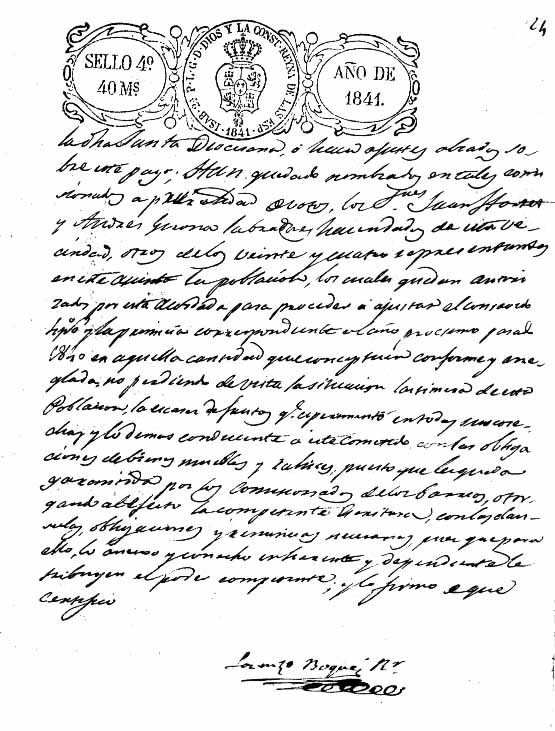 24
SELLO 4º
40 Mˢ
ISAB. 2ª P. L. G. D. DIOS Y LA CONST. REYNA DE LAS ESP.
1841
AÑO DE
1841.
la dha Junta Diocesana, ó hacer ajustes alzados so
bre este pago; Han quedado nombrados en tales comi
sionados a pluralidad de votos, los Sres Juan
y Andres labradores hacendados de esta ve
cindad, otros de los veinte y cuatro representantes
en este la poblacion, los cuales quedan autori
zados por esta para proceder á ajustar el
y la primicia correspondiente al año procsimo pasado
1840 en aquella cantidad que conceptuen conforme y arre
glada, no perdiendo de vista la situacion lastimosa de esta
Poblacion, la escases de frutos qe esperimentó en todas sus cose
chas y lo demas conducente á este cometido con las obliga
ciones de bienes muebles y raices, puesto que les queda
garantida por los Comisionados de los barrios, otor
gando al efecto la competente Escritura, con las clau
sulas, obligaciones y renuncias necesarias pues que para
ello, lo anexo y conecho incidente y dependiente le
tribuyen el poder competente, y lo firmo de que
certifico
Lorenzo Boqué, Rº.